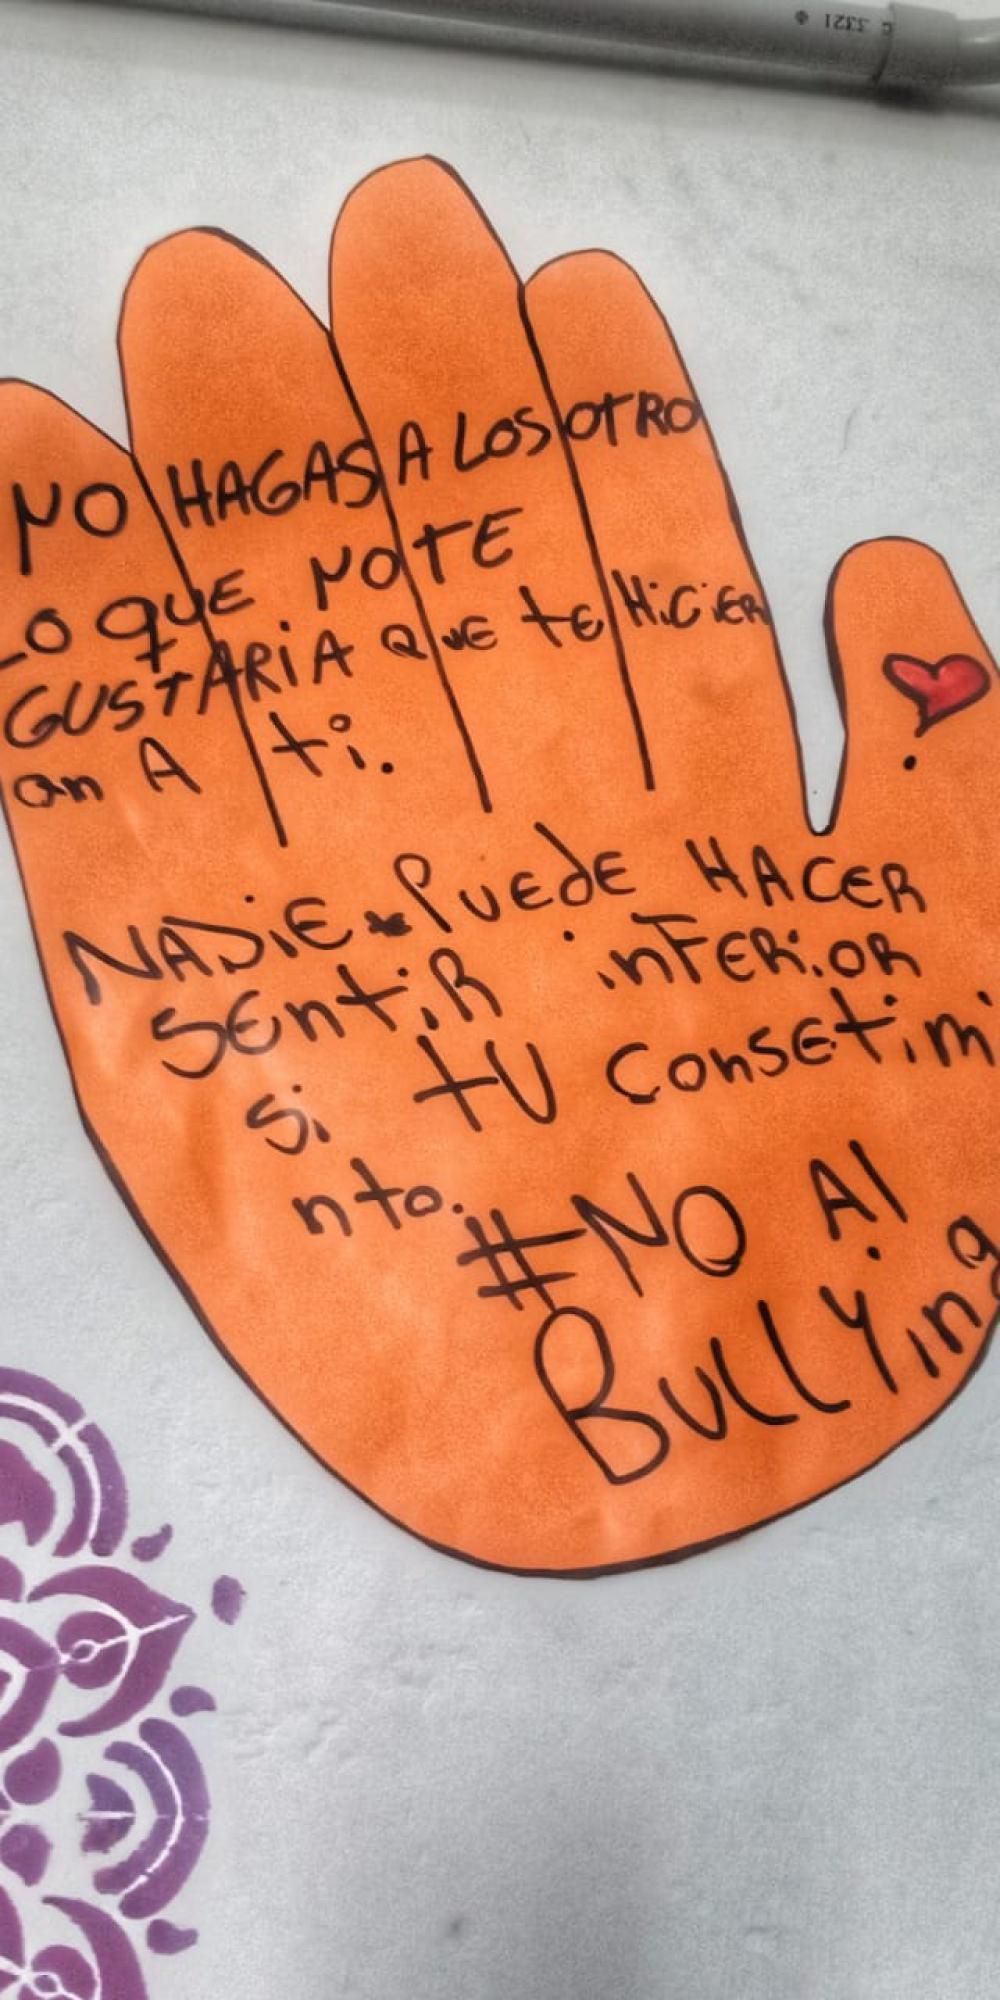 NO HAGAS A LOS OTRO
LO QUE NO TE
GUSTARiA QUE tE HiCiER
an A ti.
NADiE PUEdE HACER
SEntiR inFERiOR
Si tU ConsEtimi
nto.
#NO Al
BULLYing